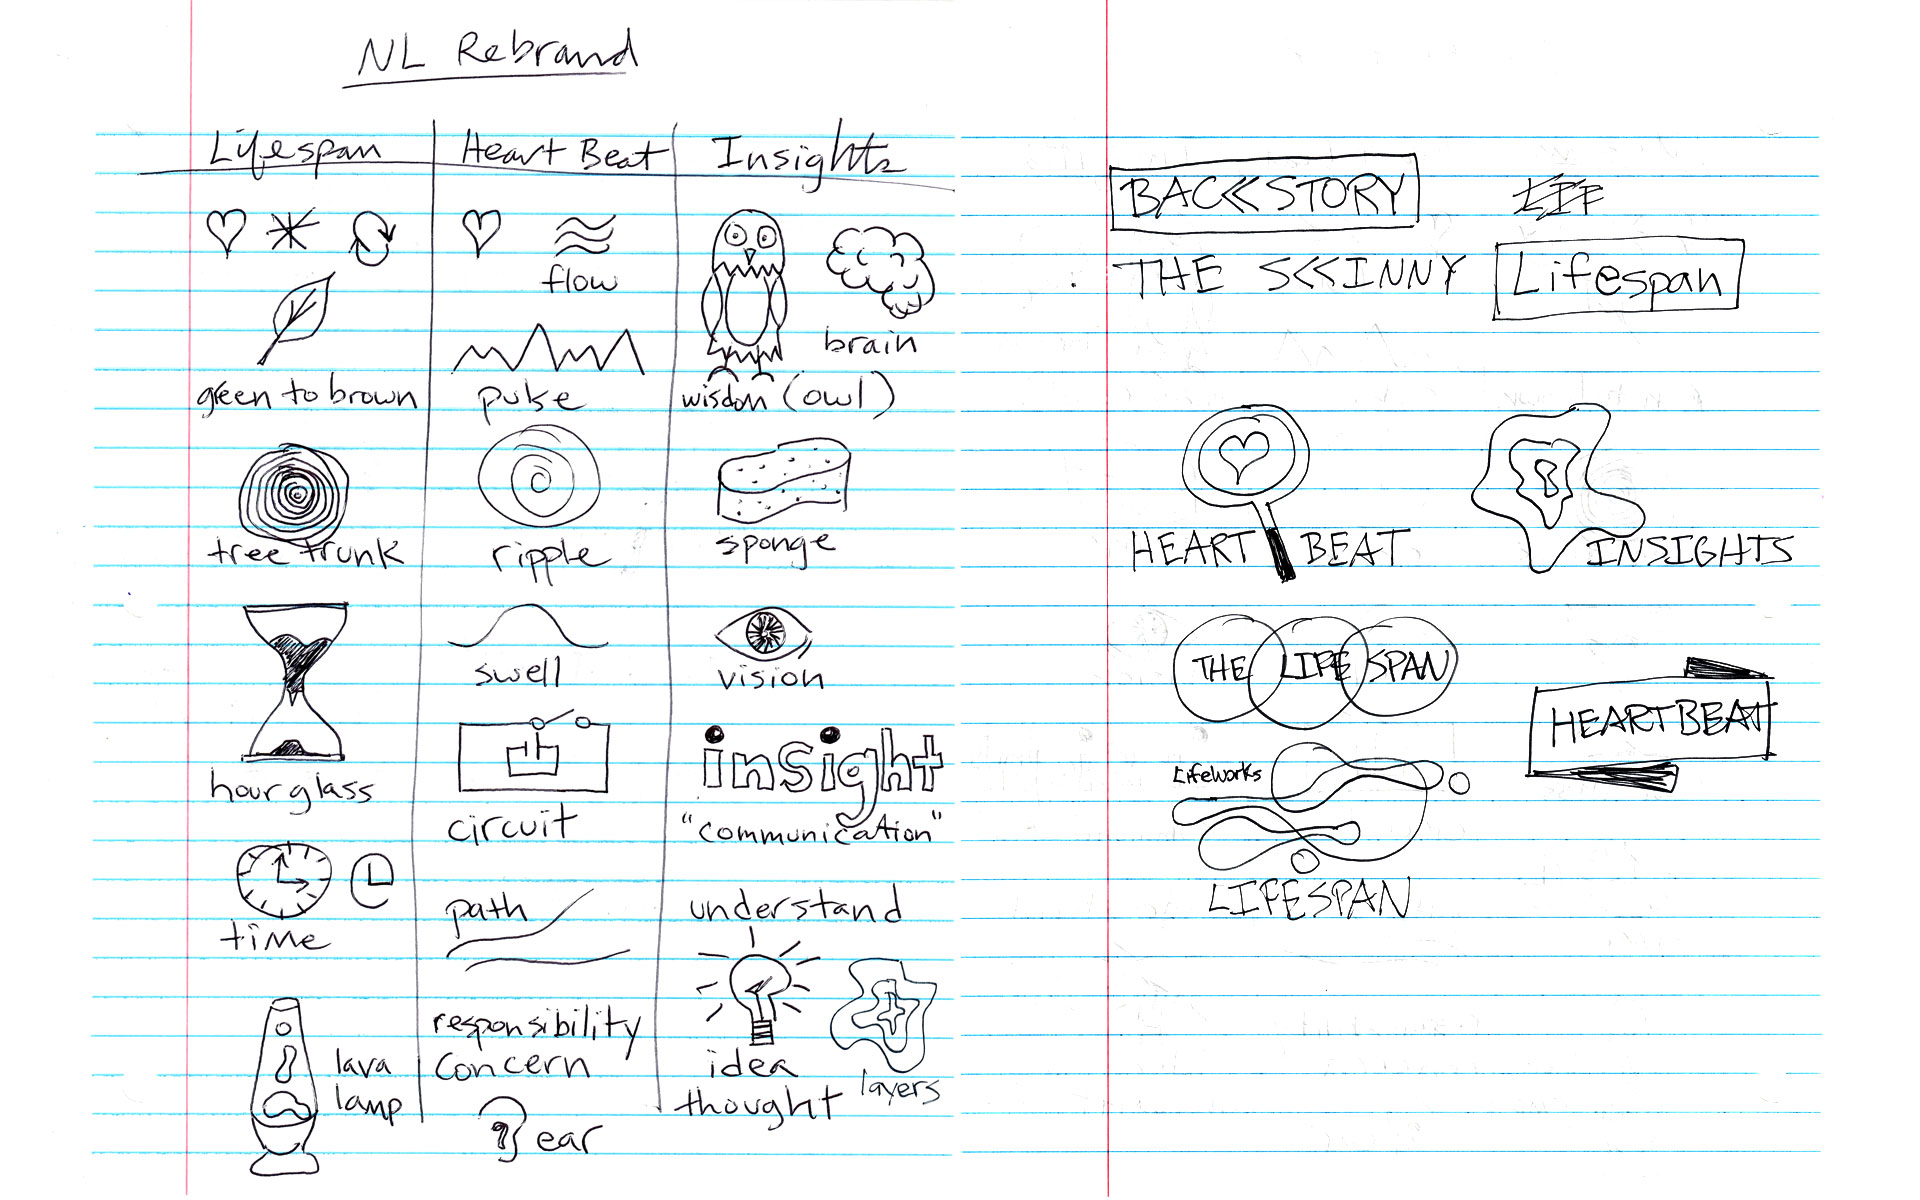 NL Rebrand
Lifespan
green to brown
tree trunk
hourglass
time
lava
lamp
Heart Beat
flow
pulse
ripple
swell
circuit
path
responsibility
concern
ear
Insights
brain
wisdom (owl)
sponge
vision
insight
"communication"
understand
idea
thought
layers
BACKSTORY
THE SKINNY
Lifespan
HEART BEAT
INSIGHTS
THE LIFE SPAN
HEARTBEAT
LifeWorks
LIFESPAN